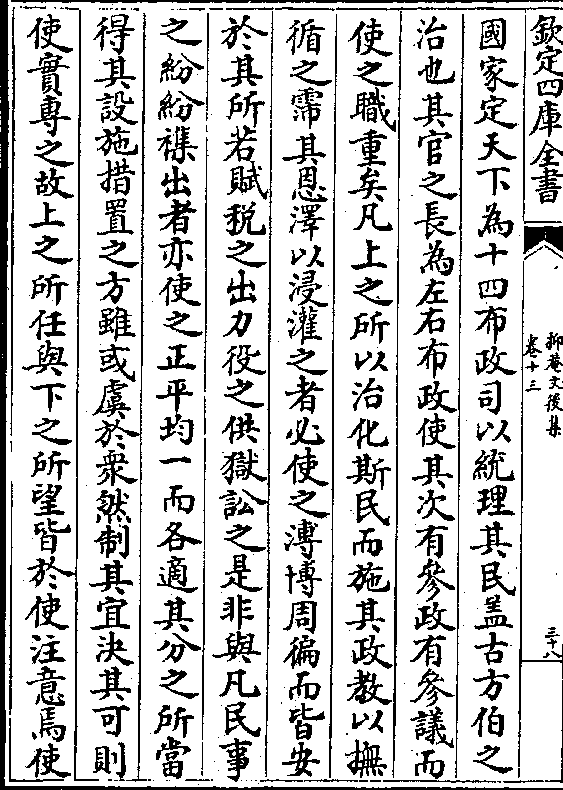 欽定四庫全書
抑菴文後集
卷十三
三十八
國家定天下為十四布政司以統理其民盖古方伯之
治也其官之長為左右布政使其次有參政有參議而
使之職重矣凡上之所以治化斯民而施其政教以撫
循之霈其恩澤以浸灌之者必使之溥博周徧而皆安
於其所若賦税之出力役之供獄訟之是非與凡民事
之紛紛襍出者亦使之正平均一而各適其分之所當
得其設施措置之方雖或虞於衆然制其宜决其可則
使實専之故上之所任與下之所望皆於使注意焉使